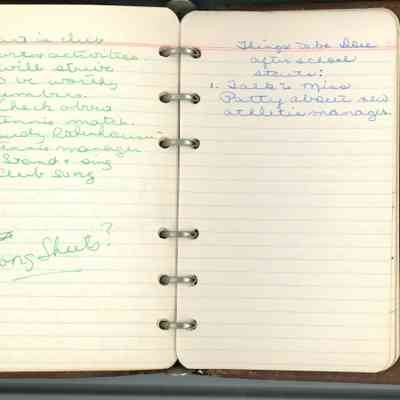 club
activities.
will strive
to be worthy
members.
Check
tennis match.
tennis manager
Stand & sing
Club Song
Song Sheets?
Things to be Done
after school
starts:
1. Talk to Miss
Patty about new
athletic manager.